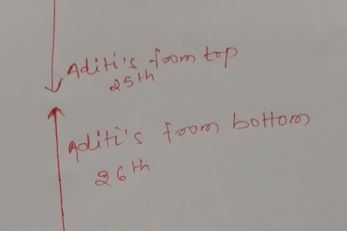 Aditi's from top
25th
Aditi's from bottom
26th